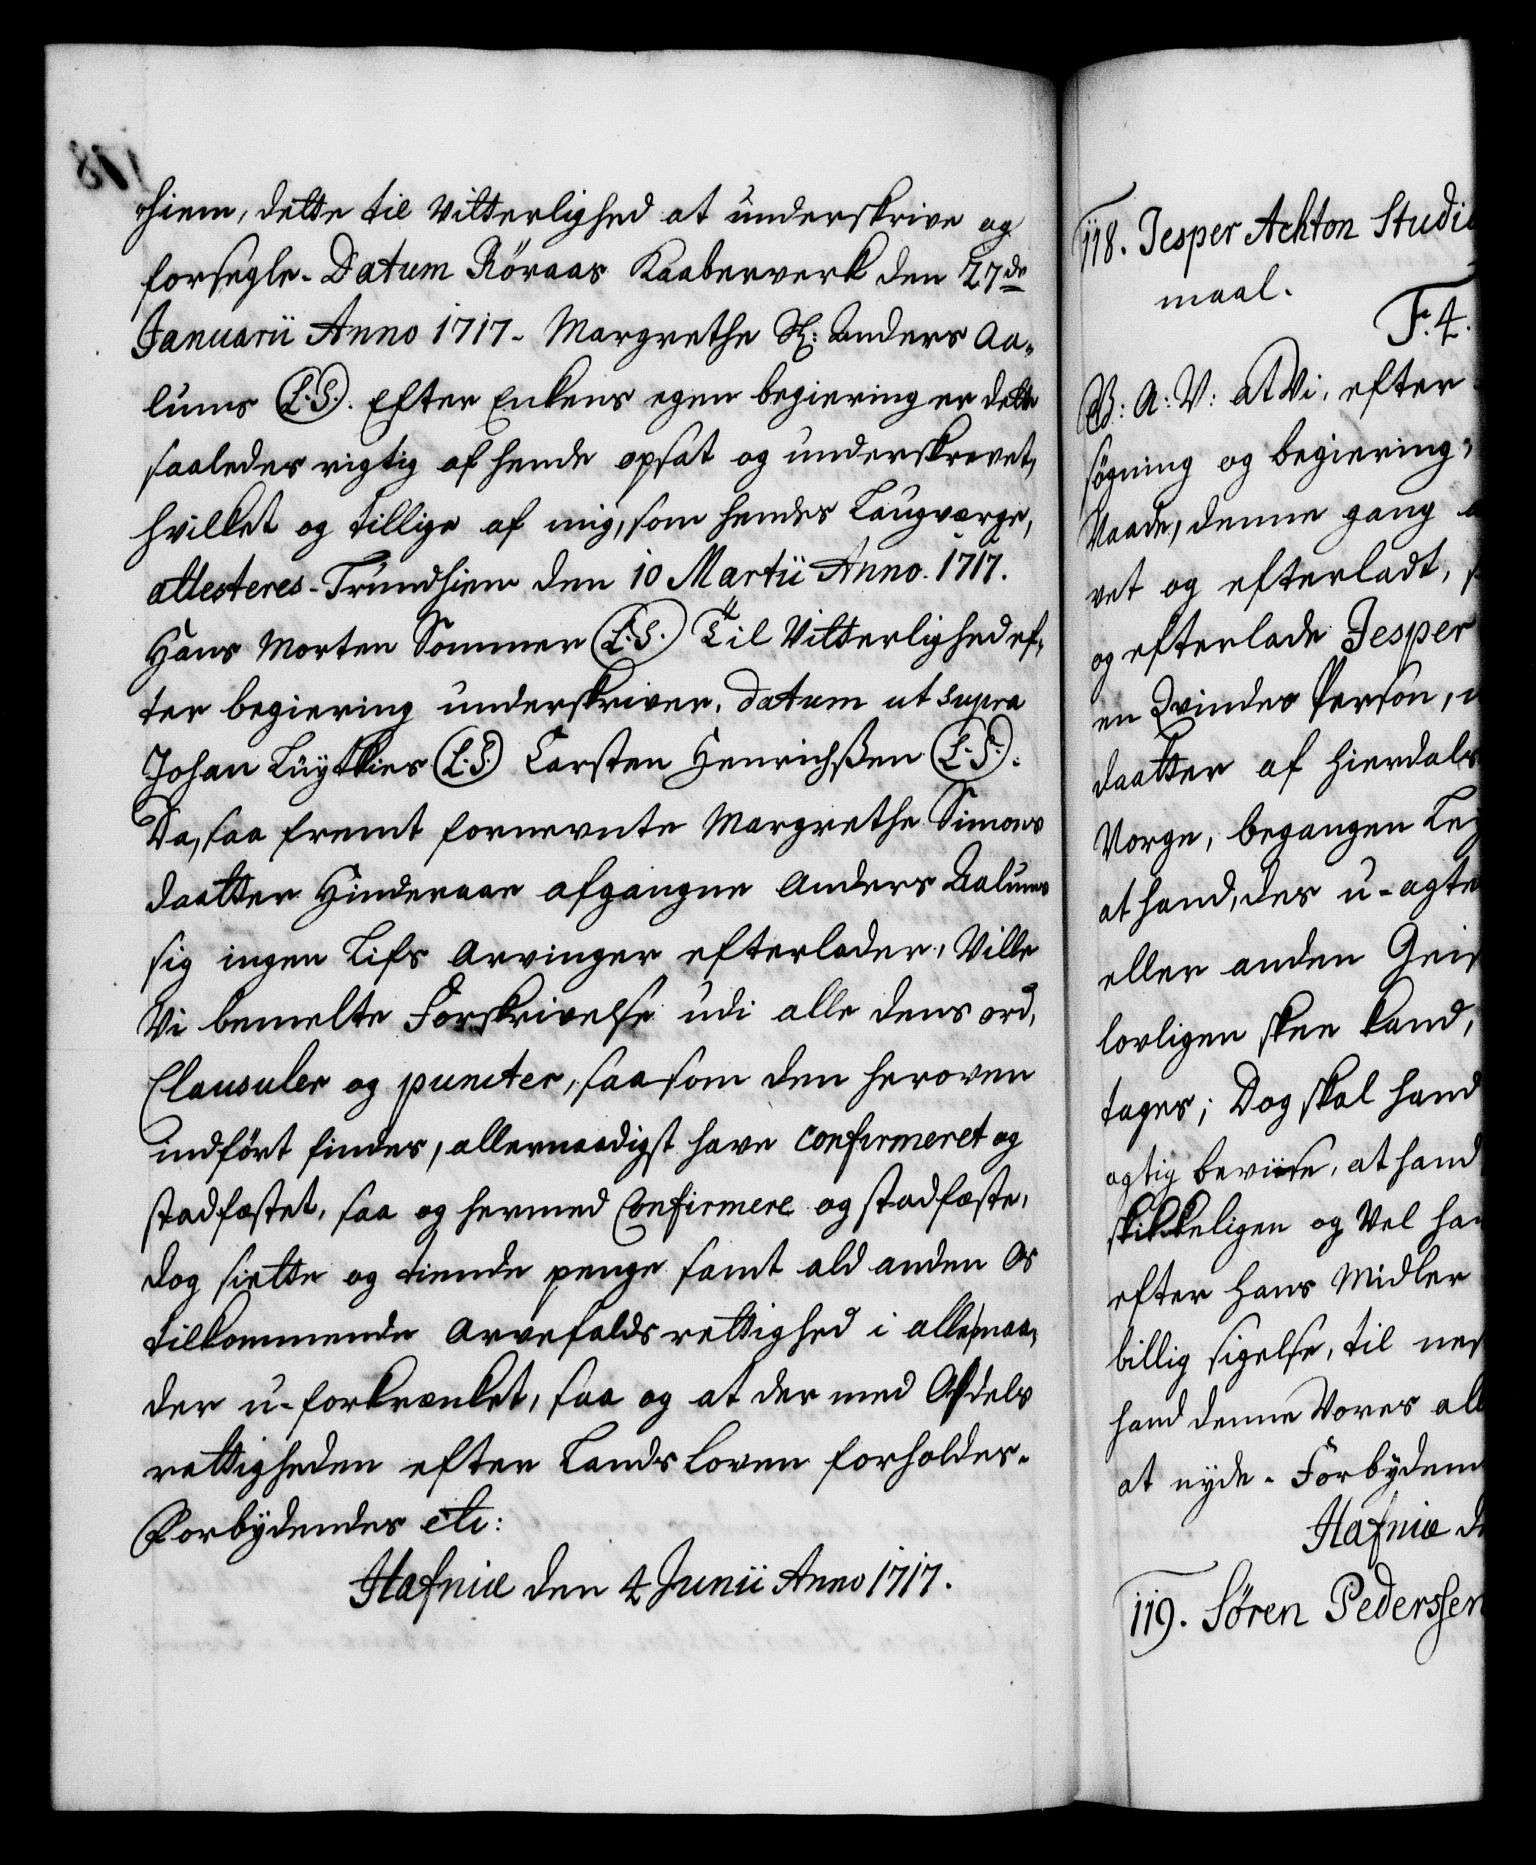 hiem, dette til Vitterlighed at underskrive og
forsegle. Datum Röraas Kaaberverk den 27de
Januarii Anno 1717. Margrethe Sl: Anders Aa„
lums L.S. Efter Enkens egen begiering er dette
saaledes rigtig af hende opsat og underskrevet,
hvilket og tillige af mig, som hendes Laugværge,
attesteres. Trundhiem den 10 Martii Anno 1717.
Hans Morten Sommer L.S. Til Vitterlighed ef„
ter begiering underskriver. Datum ut supra
Johan Lüytkies L.S. Carsten Henrichßen L.S.
Da, saa fremt fornevnte Margrethe Simons
daatter Hinderaae afgangne Anders Aalums
sig ingen Lifs Arvinger efterlader, Ville
Vi bemelte Forskrivelse udi alle dens ord,
Clausuler og puncter, saasom den heroven
indført findes, allernaadigst have Confirmeret og
stadfæstet, saa og hermed Confirmere og stadfæste,
dog siette og tiende penge samt ald anden Os
tilkommende Arvefalds rettighed i alle maa„
der u-forkrænket, saa og at der med Odels
rettigheden efter Lands Loven forholdes.
Forbydendes etc:
Hafniæ den 4 Junii Anno 1717.
118. Jesper Achton Studio
maal.
F. 4.
B: A: V: at Vi, efter
søgning og begiering,
Naade, denne gang
vet og efterladt,
og efterlade Jesper
en Qvindes Person,
daatter af Hierdals
Norge, begangen Ley
at hand, des u-agte
eller anden Geis
lovligen skee kand,
tages; Dog skal hand
agtig beviise, at hand
skikkeligen og Vel ha
efter hans Midler
billig sigelse, til nes
hand denne Vores all
at nyde. Forbydem
Hafniæ d
119. Søren Pederssen